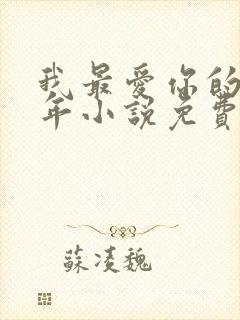 我最爱你的
年小說免費
蘇凌魏